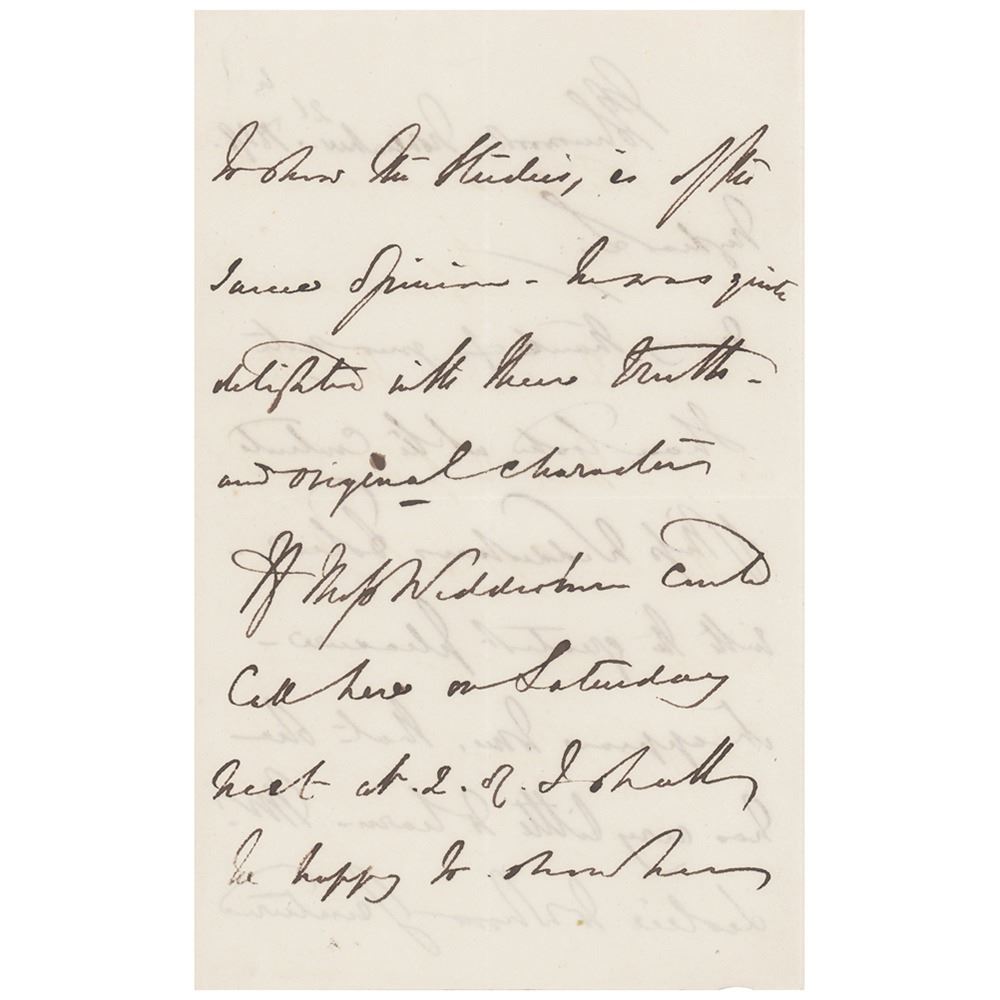 to show the Studies, is of the
same Opinion - he was quite
delighted with these truth -
and original character
If Miss Wedderburn could
Call here on Saturday
next at .2. I shall
be happy to show her